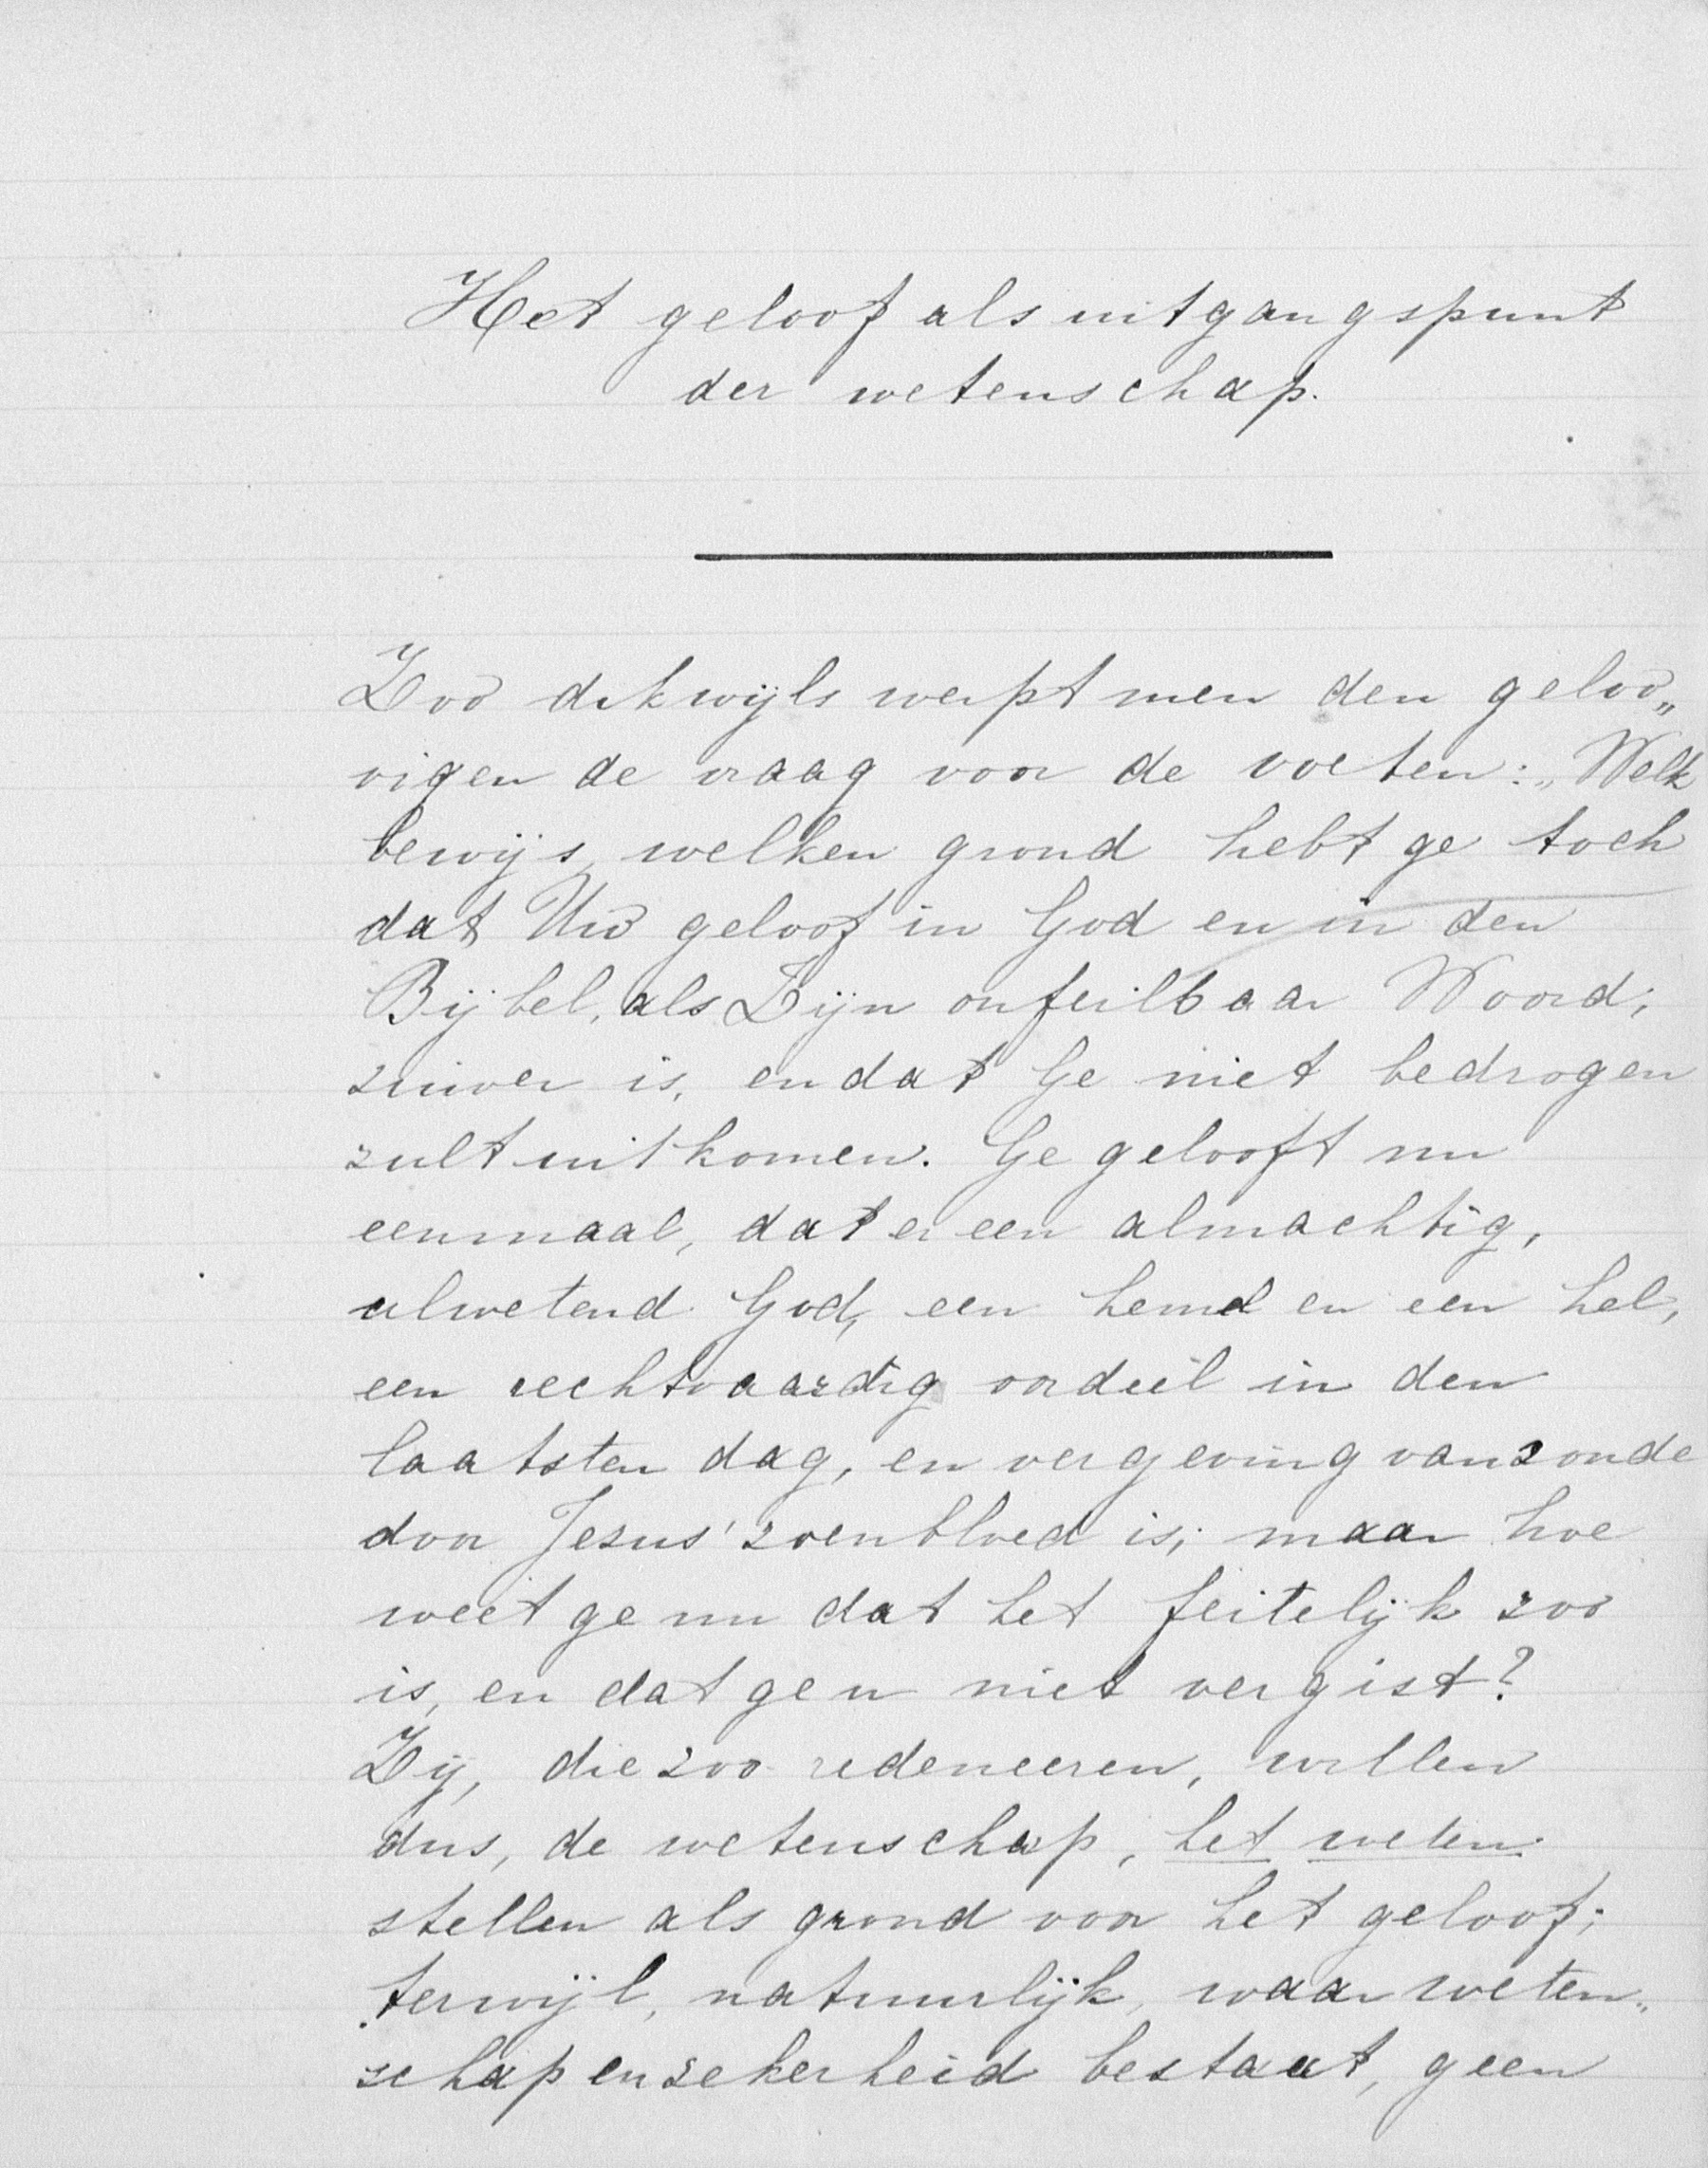 Het geloof als uitgangspunt
der wetenschap.
Zoo dikwijls werpt men den geloo„
vigen de vraag voor de voeten: „Welk
bewijs, welken grond hebt ge toch
dat Uw geloof in God en in den
Bijbel, als Zijn onfeilbaar Woord,
zuiver is, en dat Ge niet bedrogen
zult uitkomen. Ge gelooft nu
eenmaal, dat er een almachtig,
alwetend God, een hemel en een hel,
een rechtvaardig oordeel in den
laatsten dag, en vergeving van zonde
door Jezus' zoenbloed is; maar hoe
weet ge nu dat het feitelijk zoo
is, en dat ge u niet vergist?
Zij, die zoo redeneeren, willen
dus, de wetenschap, het weten
stellen als grond voor het geloof;
terwijl, natuurlijk, waar weten„
schap en zekerheid bestaat, geen